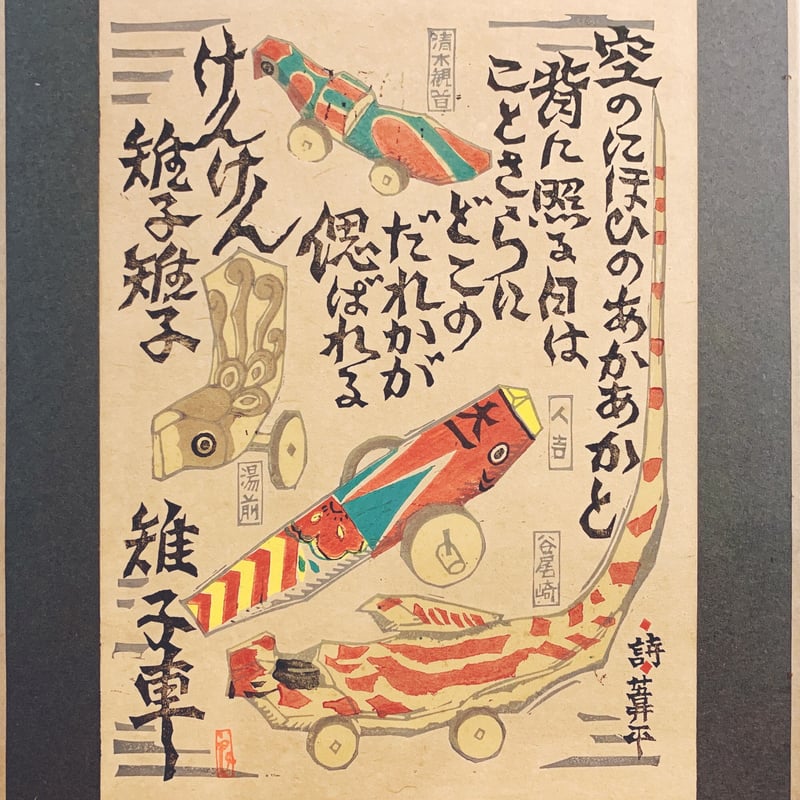 空のにほひのあかあかと
背に照る日は
ことさらに
どこの
だれかが
偲ばれる
けんけん
雉子雉子
雉子車
清水観音
人吉
湯前
谷尾崎
詩 葦平